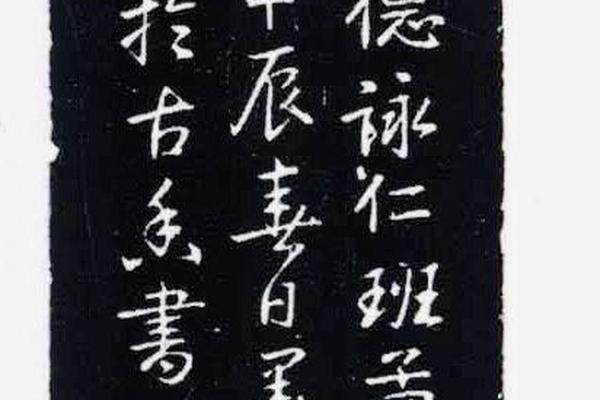 德詠仁班
辰春日墨
於古香書